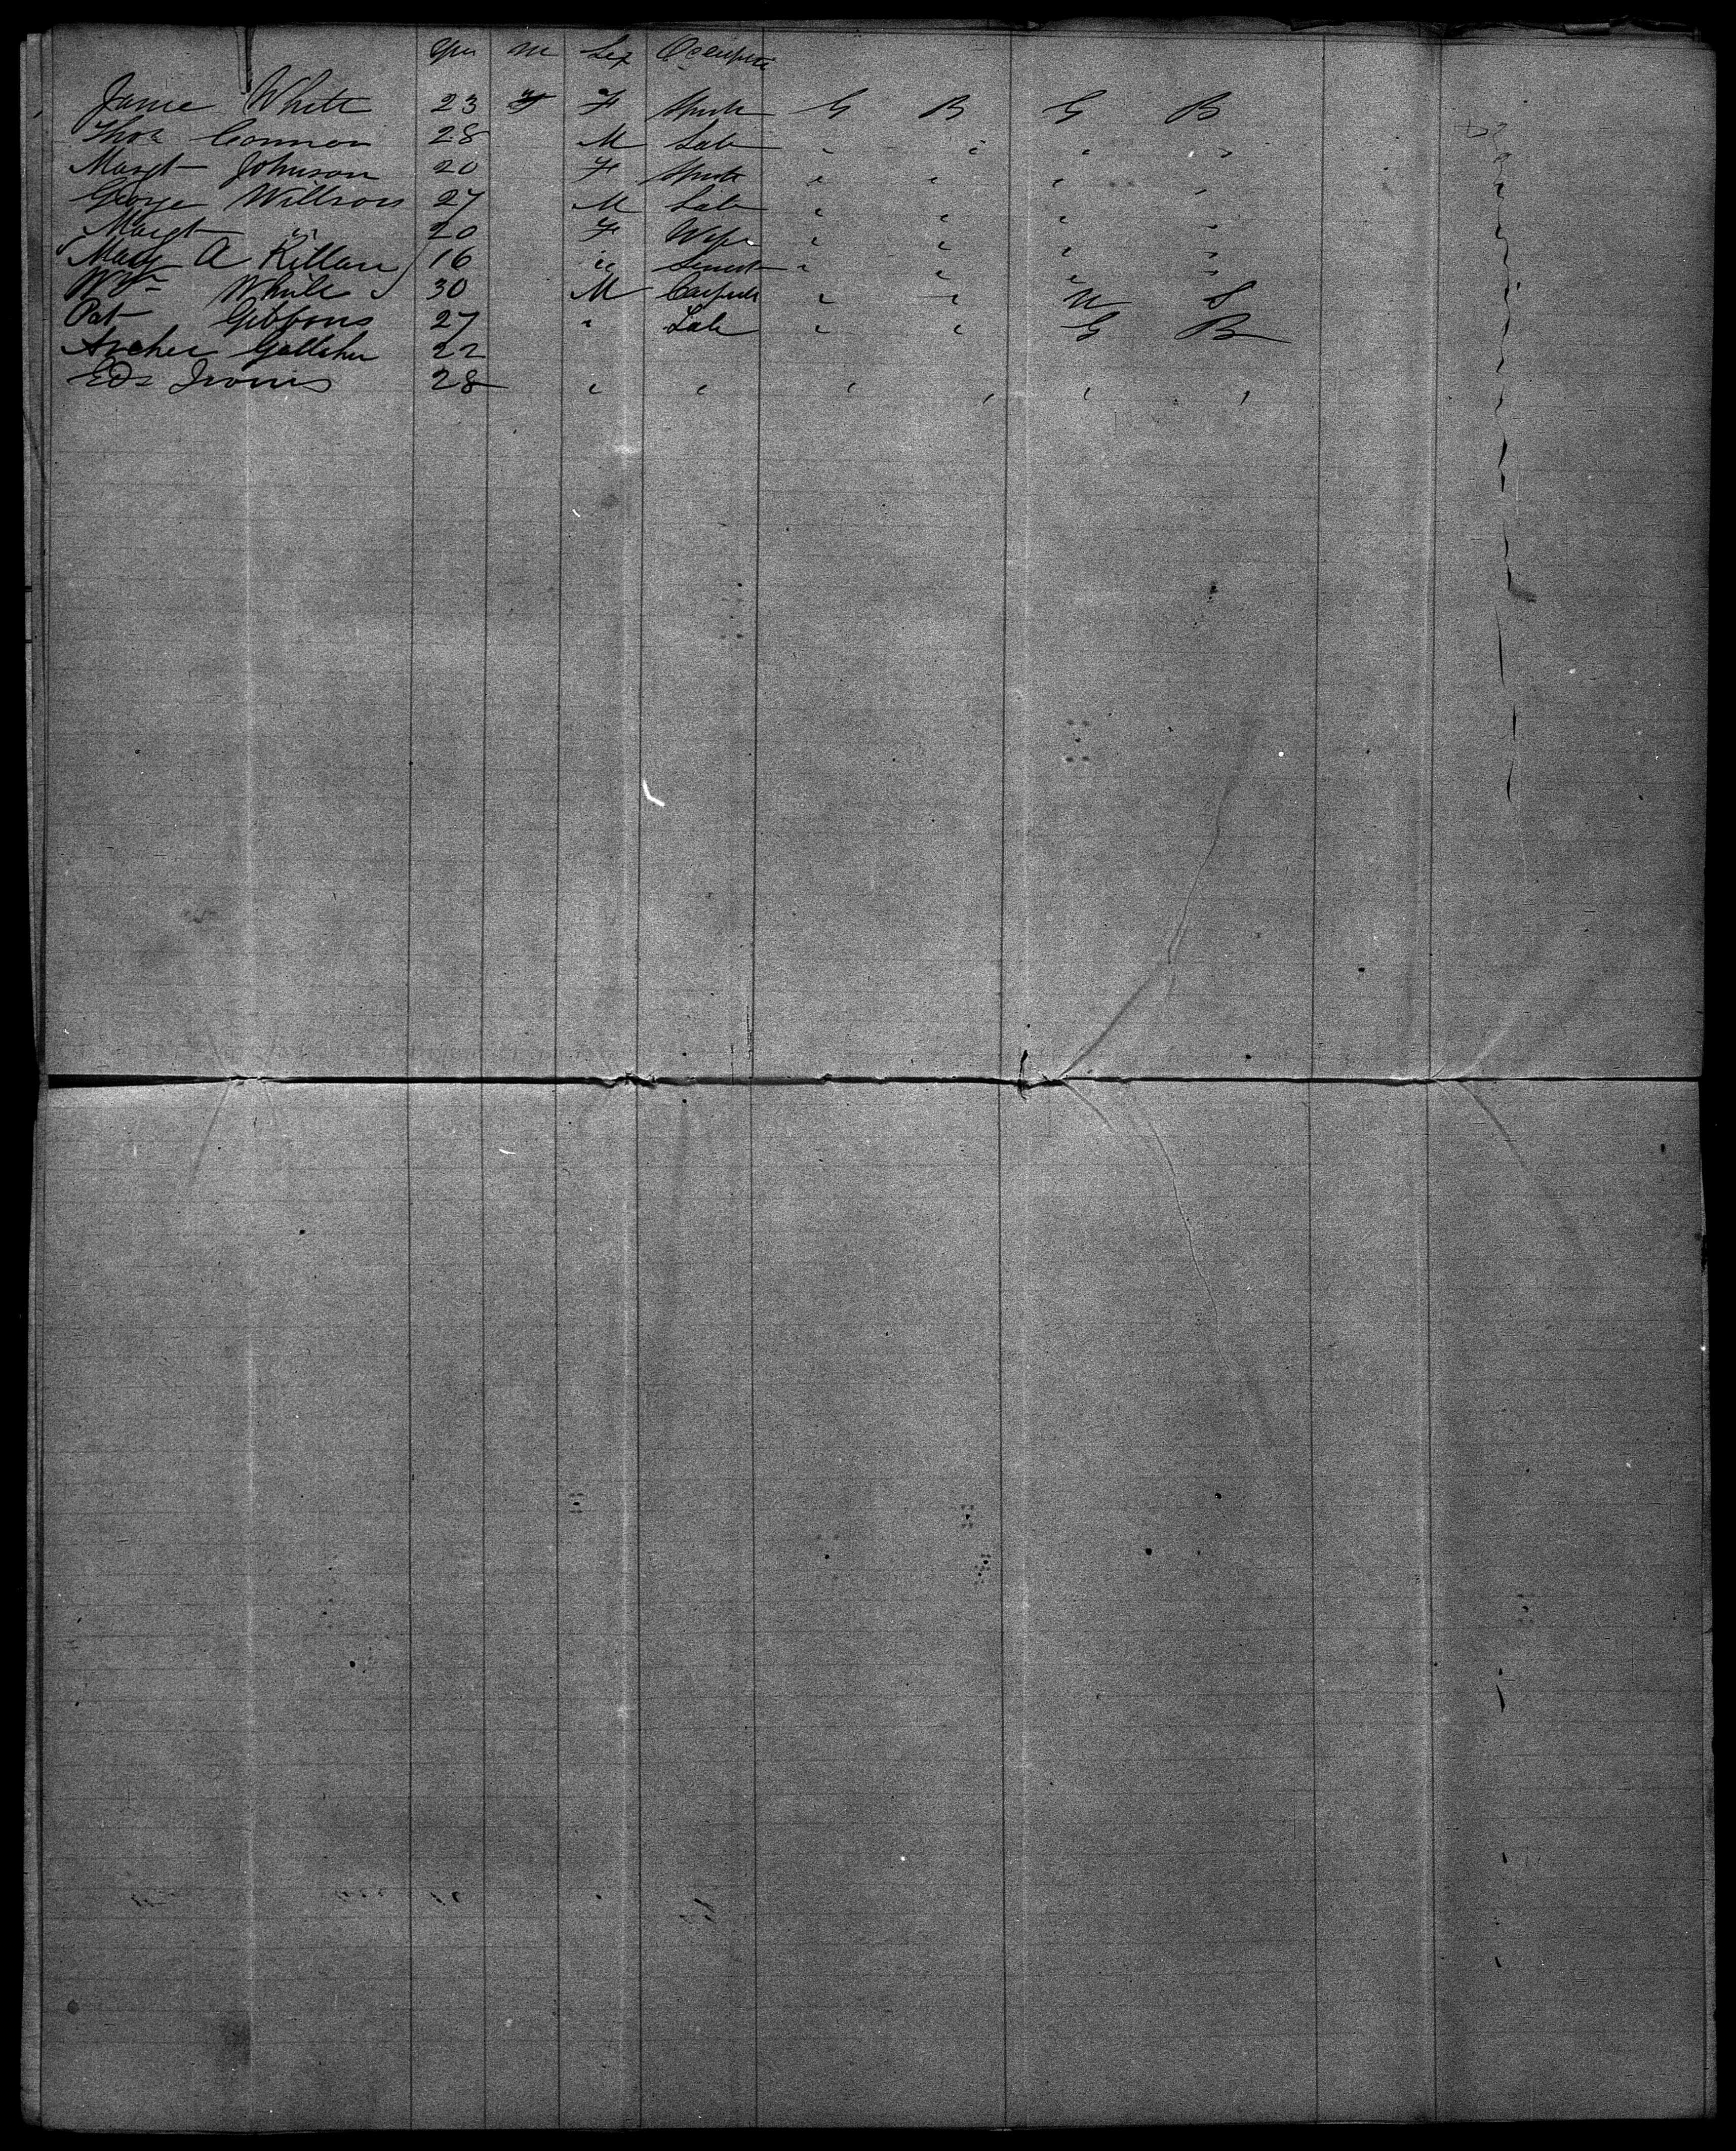 Yrs M Sex Occupatn
Jane White 23 F F Spinster G B G B
Thos Connor 28 M Lab " " " "
Margt Johnson 20 F Spinster " " " "
George Willson 27 M Lab " " " "
Margt " 20 F Wife " " " "
Mary A Killan 16 " Servt " " " "
Wm White 30 M Carpntr " " U S
Pat Gibbons 27 " Lab " " G B
Archer Gallaher 22
Edd 28 " " " " " "